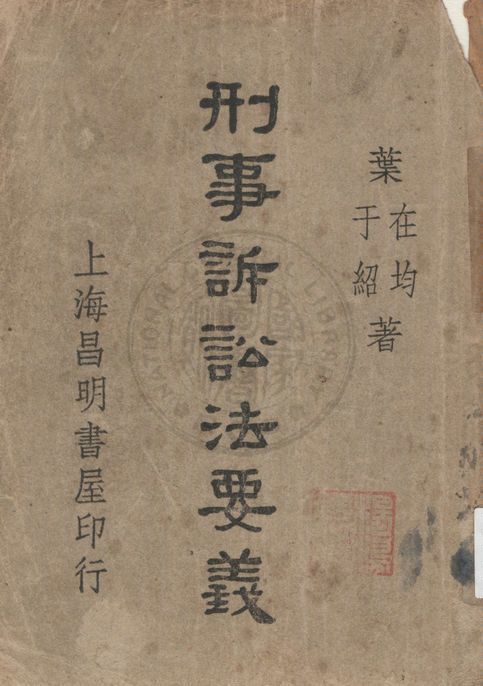 葉
在均
于紹
著
刑事訴訟法要義
上海昌明書屋印行